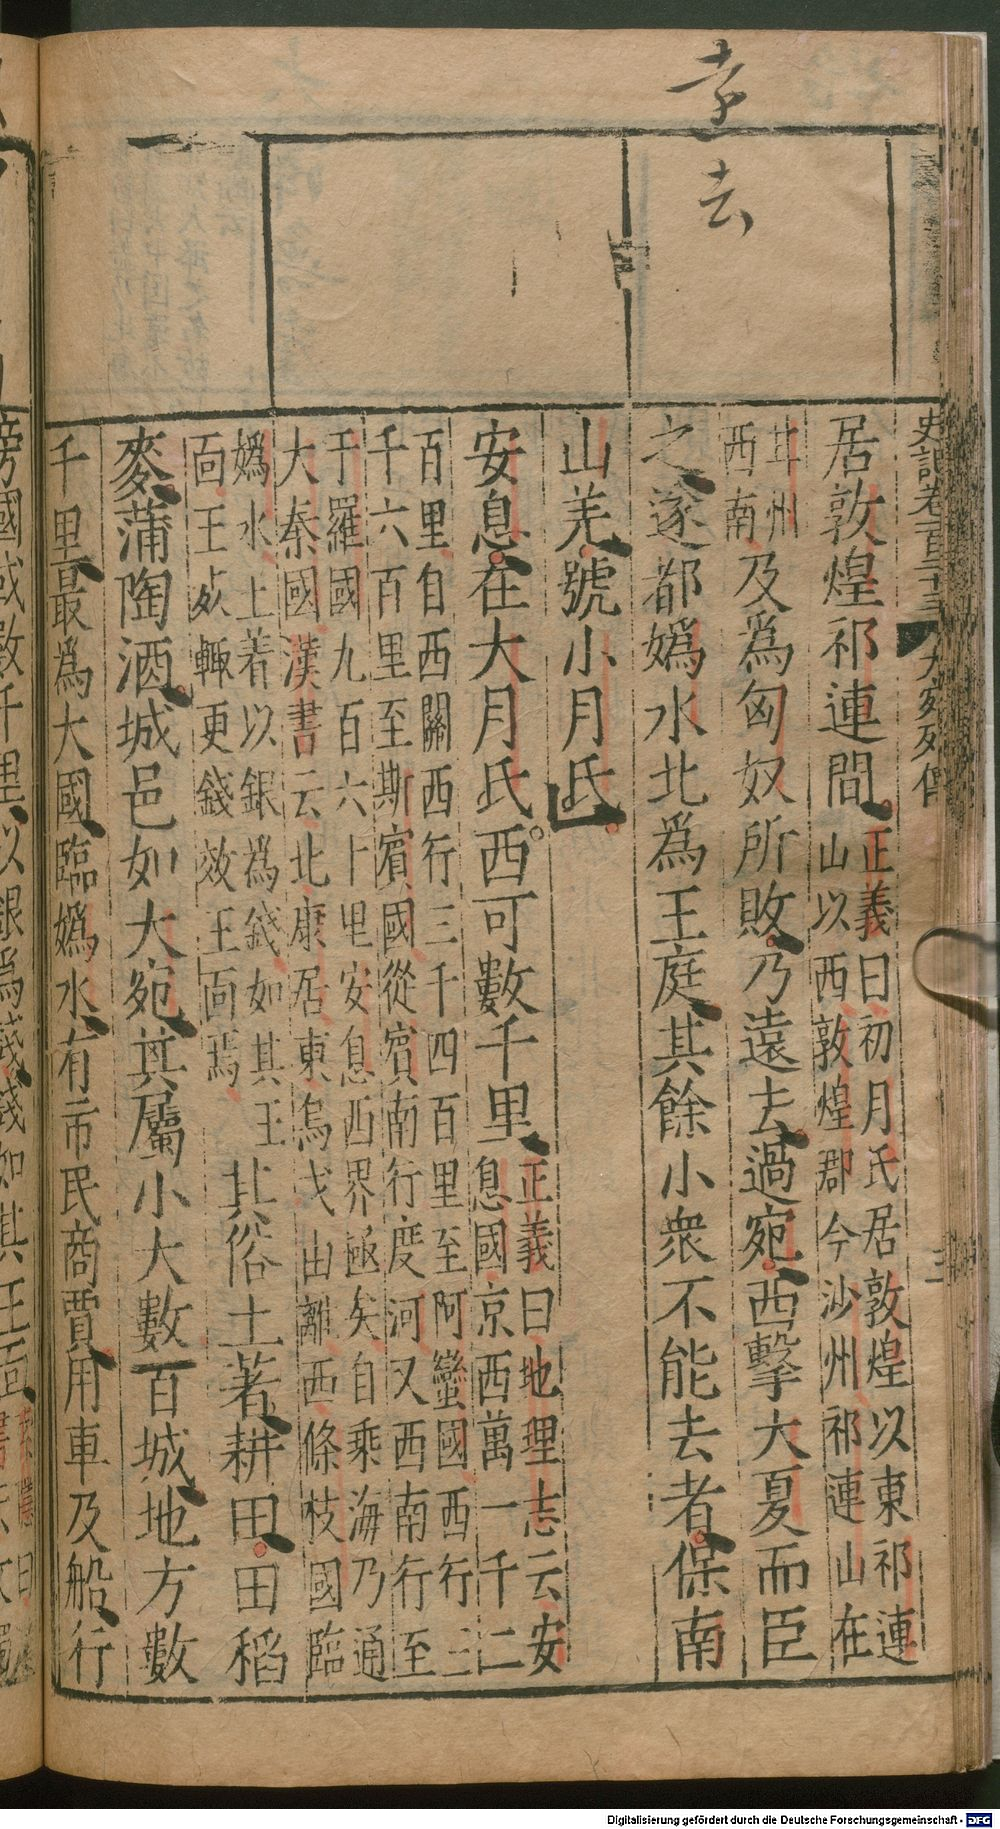 去
史記卷一百二十三 大宛列傳
居敦煌祁連間正義曰初月氏居敦煌以東祁連
山以西敦煌郡今沙州祁連山在
甘州
西南及爲匈奴所敗乃遠去過宛西擊大夏而臣
之遂都嬀水北爲王庭其餘小衆不能去者保南
山羌號小月氏
安息在大月氏西可數千里正義曰地理志云安
息國京西萬一千二
百里自西關西行三千四百里至阿蠻國西行三
千六百里至斯賓國從賓南行度河又西南行至
于羅國九百六十里安息西界極矣自乘海乃通
大秦國漢書云北康居東烏弋山離西條枝國臨
嬀水土著以銀爲錢如其王
面王死輒更錢效王面焉
其俗土著耕田田稻
麥蒲陶酒城邑如大宛其屬小大數百城地方數
千里最爲大國臨嬀水有市民商賈用車及船行
旁國或數千里以銀爲錢錢如其王面
Digitalisierung gefördert durch die Deutsche Forschungsgemeinschaft - DFG